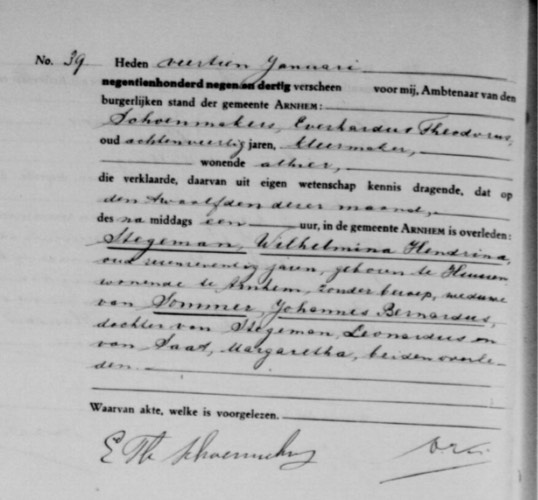 No. 39 Heden veertien Januari
negentienhonderd negen en dertig verscheen voor mij, Ambtenaar van den
burgerlijken stand der gemeente ARNHEM:
Schoenmakers, Everhardus Theodorus,
oud achtenveertig jaren, kleermaker,
wonende alhier,
die verklaarde, daarvan uit eigen wetenschap kennis dragende, dat op
den twaalfden dezer maand,
des na middags een uur, in de gemeente ARNHEM is overleden:
Stegeman, Wilhelmina Hendrina,
oud zevenzeventig jaren, geboren te Huissen
wonende te Arnhem, zonder beroep, weduwe
van Sommer, Johannes Bernardus,
dochter van Stegeman, Leonardus en
van Saat, Margaretha, beiden overle-
den.
Waarvan akte, welke is voorgelezen.
E Th Schoenmakers